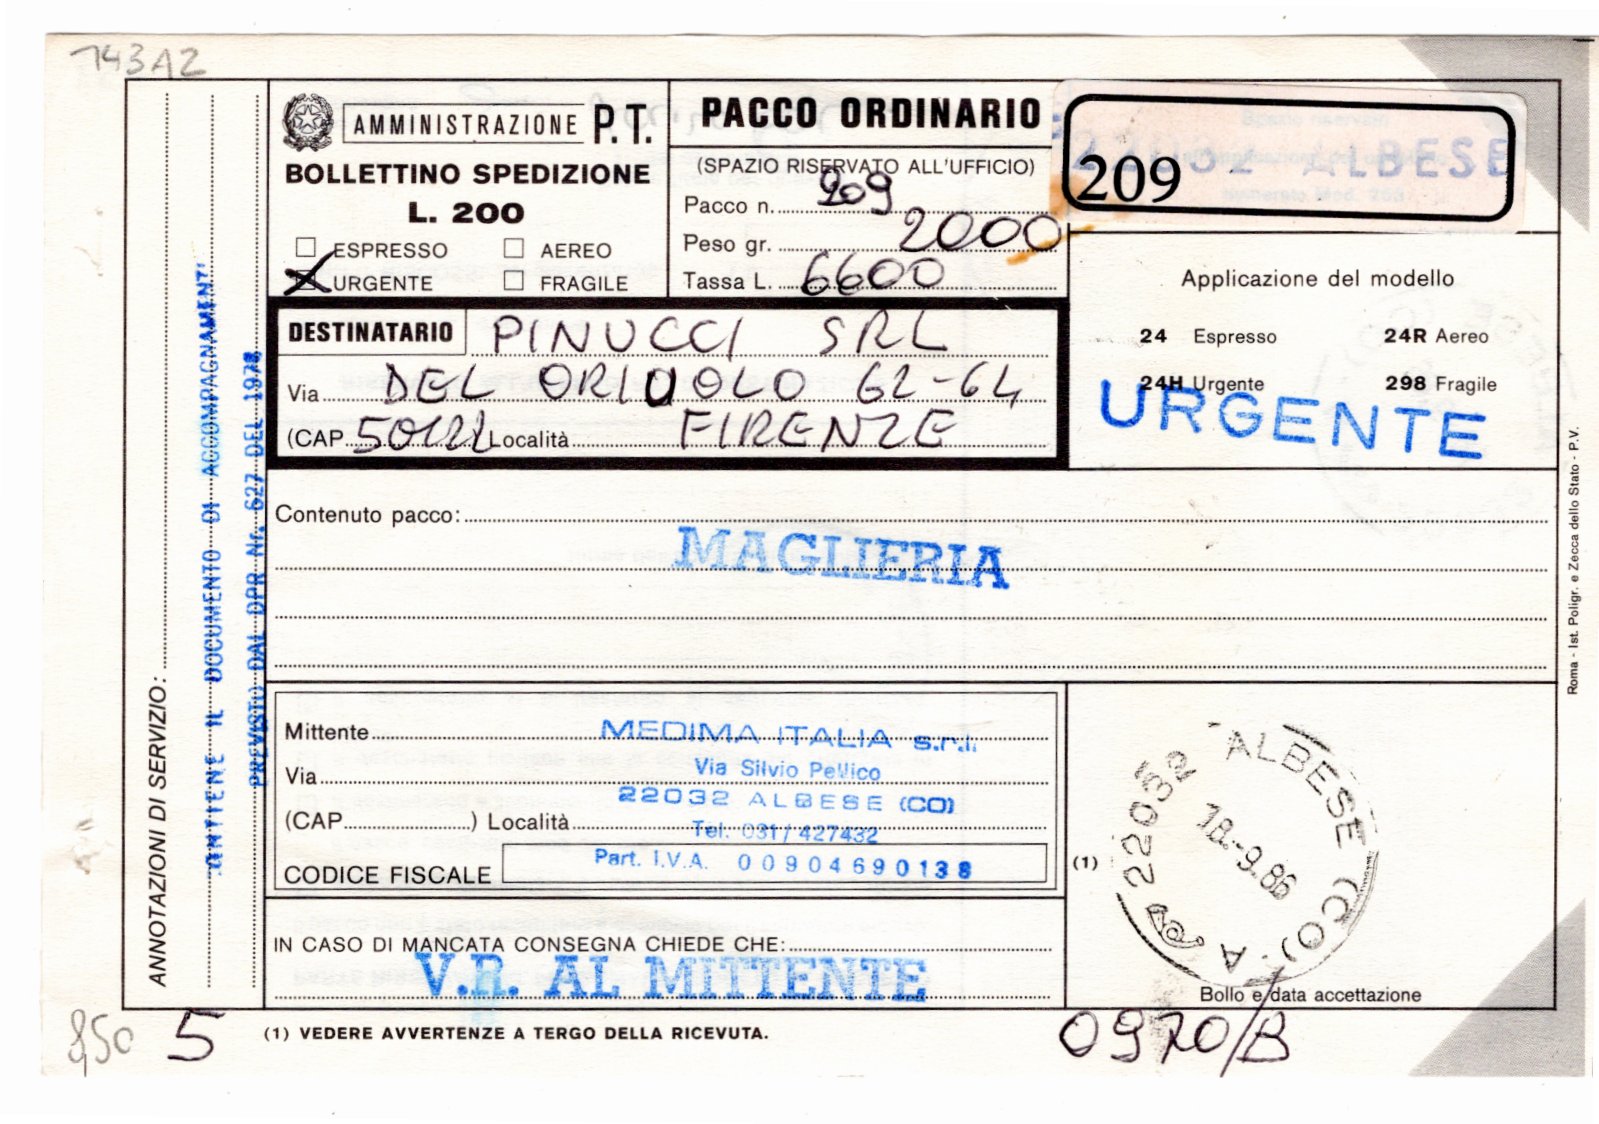 743A2
AMMINISTRAZIONE P.T.
BOLLETTINO SPEDIZIONE
L. 200
ESPRESSO AEREO
URGENTE FRAGILE
PACCO ORDINARIO
(SPAZIO RISERVATO ALL'UFFICIO)
Pacco n. 209
Peso gr. 2000
Tassa L. 6600
22032 ALBESE
209
Applicazione del modello
24 Espresso 24R Aereo
24H Urgente 298 Fragile
URGENTE
DESTINATARIO PINUCCI SRL
Via DEL ORIUOLO 62-64
(CAP 50122 Località FIRENZE
Contenuto pacco:
MAGLIERIA
Mittente MEDIMA ITALIA s.r.l.
Via Via Silvio Pellico
22032 ALBESE (CO)
(CAP ) Località Tel. 031/427432
CODICE FISCALE Part. I.V.A. 00904690138
IN CASO DI MANCATA CONSEGNA CHIEDE CHE:
V.R. AL MITTENTE
(1)
22032 ALBESE (CO) A
18.-9.86
Bollo e data accettazione
ANNOTAZIONI DI SERVIZIO:
CONTIENE IL DOCUMENTO DI ACCOMPAGNAMENT'
PREVISTO DAL DPR Nr. 627 DEL 1978
Roma - Ist. Poligr. e Zecca dello Stato - P.V.
850 5
(1) VEDERE AVVERTENZE A TERGO DELLA RICEVUTA.
0970/B